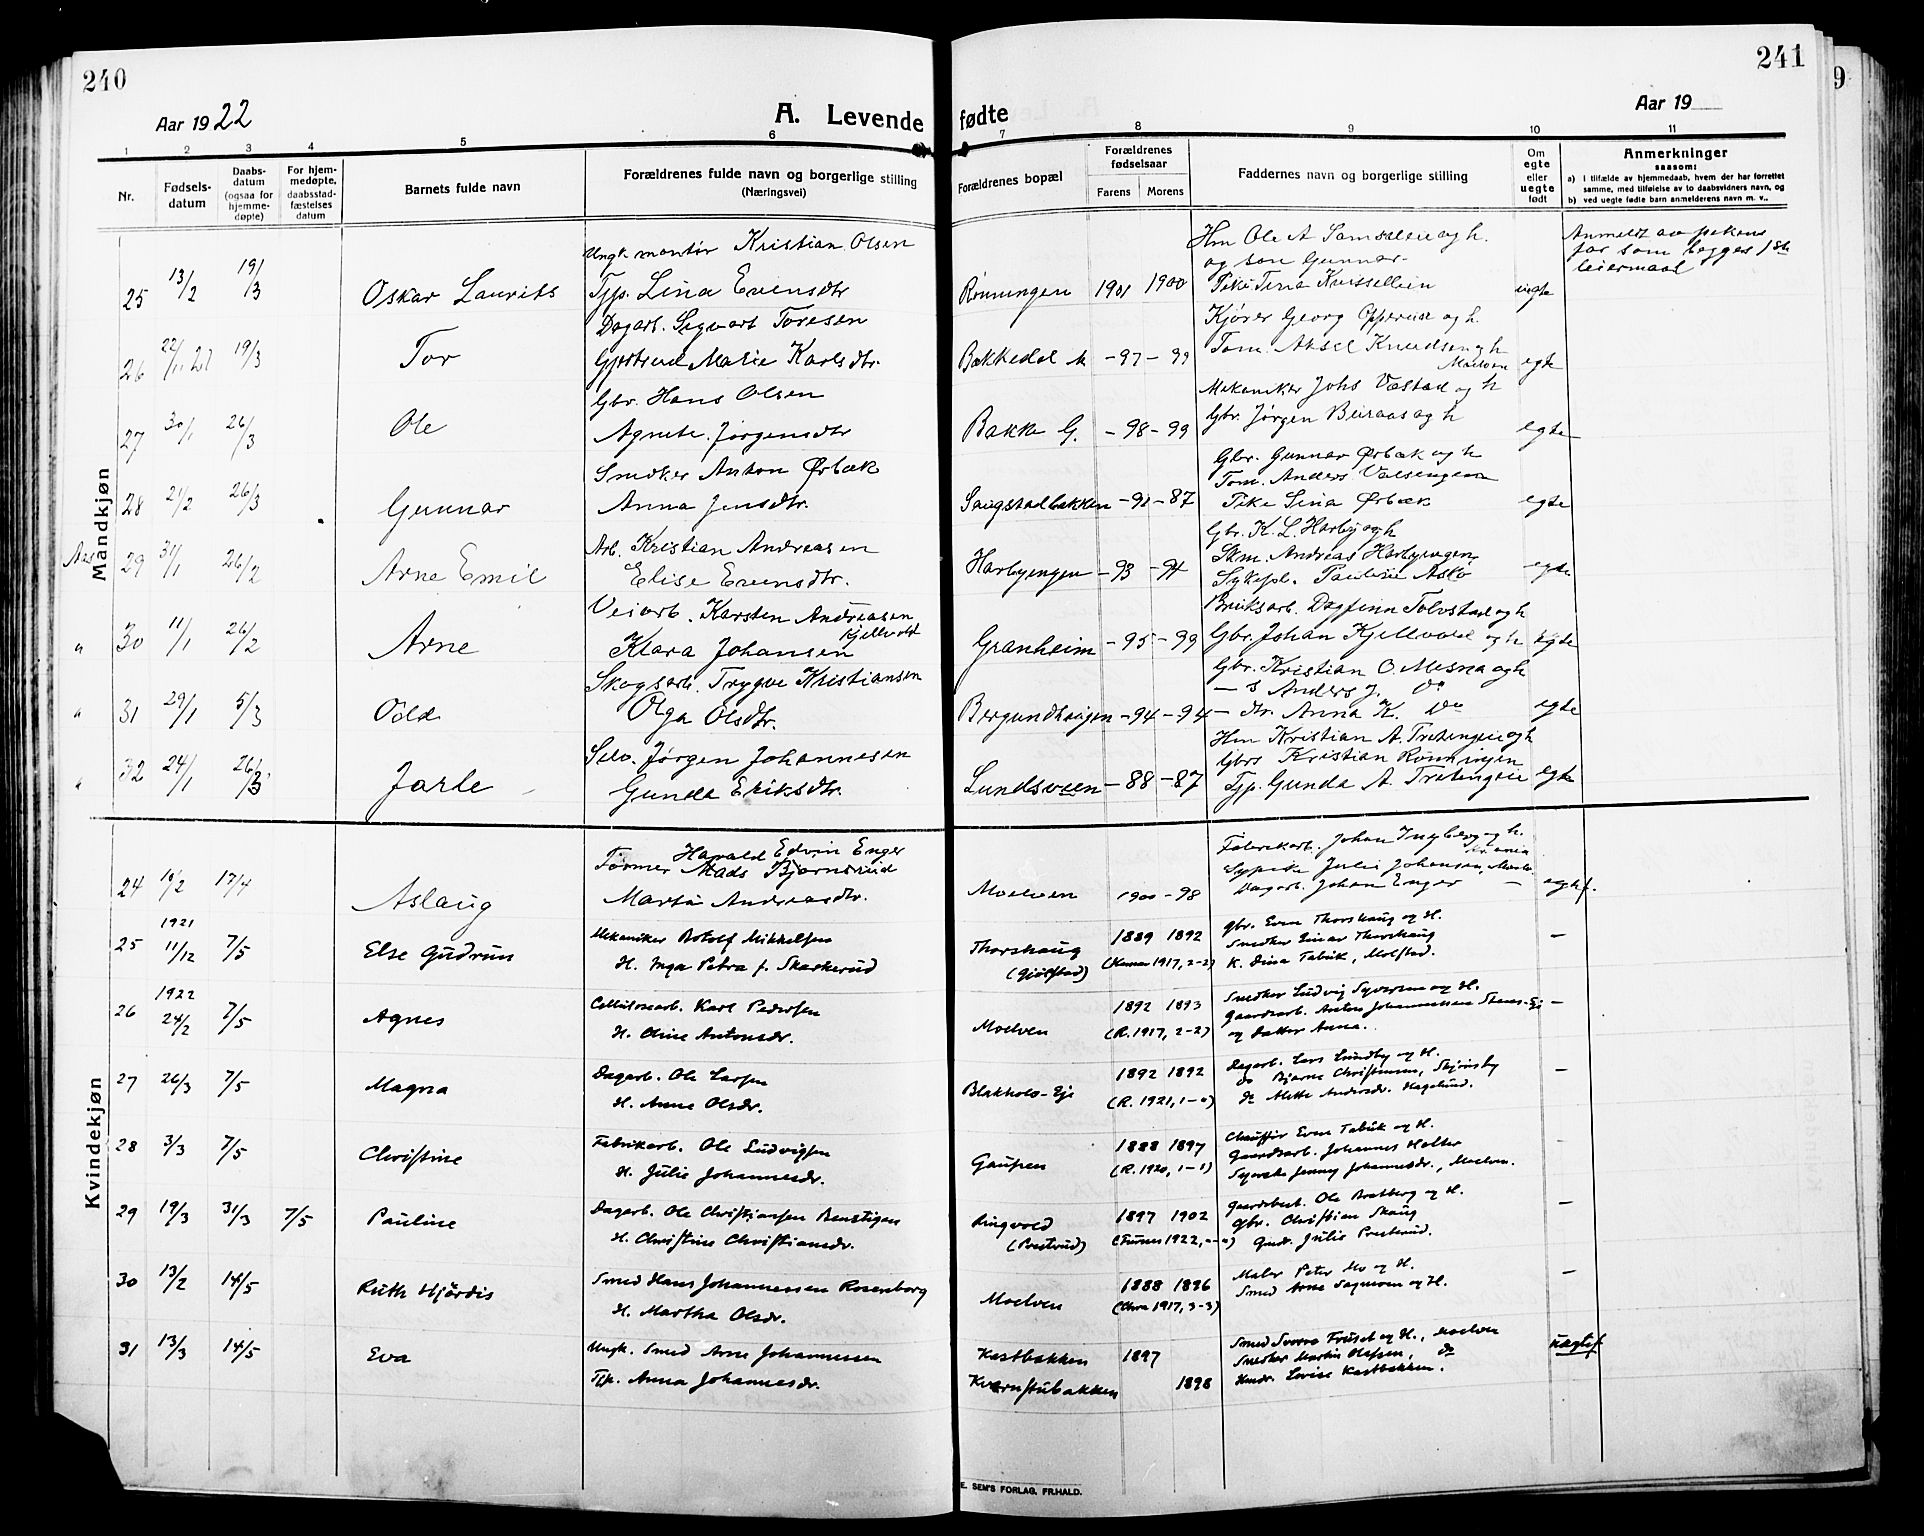 240
241
9
Aar 1922
A. Levende fødte
Aar 19
1 2 3 4 5 6 7 8 9 10 11
Nr.
Fødsels-
datum
Daabs-
datum
(ogsaa for
hjemme-
døpte)
For hjem-
medøpte,
daabsstad-
fæstelses
datum
Barnets fulde navn
Forældrenes fulde navn og borgerlige stilling
(Næringsvei)
Forældrenes bopæl
Forældrenes
fødselsaar
Farens Morens
Faddernes navn og borgerlige stilling
Om
egte
eller
uegte
født
Anmerkninger
saasom:
a) I tilfælde av hjemmedaab, hvem der har forrettet
samme, med tilføielse av to daabsvidners navn, og
b) ved uegte fødte barn anmelderens navn m. v..
Mandkjøn
Ungk. montør Kristian Olsen
Hm Ole A
og h.
Anmeldt av pikens
far som begges 1ste
leiermaal
og søn Gunnar
25 13/2 19/3 Oskar Laurits Tjp. Lina Evensdtr Rønningen 1901 1900 Pike Tina uegte
Dagarb. Sigvart Toresen
Kjører Georg og h.
26 19/3 Tor Gjertrud Marie Karlsdtr. -97 - 99 Tøm. Aksel Knudsen og h egte
Moelven
Gbr. Hans Olsen
Mekaniker Johs Væstad og h
27 30/1 26/3 Ole Agnete Jørgensdtr Bakke G. -98 - 99 Gbr. Jørgen og h egte
Snedker Anton Ørbæk
Gbr. Gunnar Ørbæk og h
Tøm. Anders
28 21/2 26/3 Gunnar Anna Jensdtr. Saugstadbakken -91 - 87 Pike Lina Ørbæk egte
Arb. Kristian Andreasen
Gbr. K. L. Harby og h
Skm. Andreas Harbyengen
Aas 29 31/1 26/2 Arne Emil Elise Evensdtr. Harbyengen -93 - 94 Sykepl. Pauline egte
Veiarb. Karsten Andreasen
Kjellvold
Bruksarb. Dagfinn Tolvstad og h
" 30 11/1 26/2 Arne Klara Johansen Granheim -95 - 99 Gbr. Johan Kjellvold og h egte
Skogsarb. Trygve Kristiansen
Gbr. Kristian O. Mesna og h
- s Anders J. Do
" 31 29/1 5/3 Odd Olga Olsdtr. Borgundhaugen -94 - 94 - dtr. Anna K. Do egte
Selv. Jørgen Johannesen
Hm Kristian A. og h
Gbrs Kristian Rønningen
" 32 24/1 26/3 Jarle Gunda Eriksdtr. Lundsveen -88 - 87 Tjp. Gunda A. egte
Kvindekjøn
Harald Edvin Enger
Mads Bjørnsrud
Fabrikarb. Johan Ingberg og h.
Sypike Julie Johansen,
24 17/4 Aslaug Marta Andreasdtr. Moelven 1900 - 98 Dagarb. Johan Enger - egtef.
1921
Mekaniker Botolf Mikkelsen
1889 1892
gbr. Even Thorshaug og H.
25 11/12 7/5 Else Gudrun Thorshaug Snedker Einar Thorshaug -
H. Inga Petra f. Skarkerud (Gjølstad) (1917, 2-2) K. Dina Tabuk, Molstad.
1922
Cellulosearb. Karl Pedersen
1892 1893
Snedker Ludvig Syversen og H.
26 24/2 7/5 Agnes Moelven Gaardsarb. Anton Johannessen -
H. Oline Antonsdr. (R. 1917, 2-2) og datter Anna.
27 26/3 7/5 Magna Dagarb. Ole Larsen 1892 1892 Dagarb. Lars Lundby og H. -
do Bjarne Christensen,
H. Anne Olsdr. Blakhols-Eje (R. 1921, 1-0) do Mette Andersdr. Hagelund.
28 3/3 7/5 Christine Fabrikarb. Ole Ludvigsen 1888 1897 Chauffør Even Tabuk og H. -
Gaardsarb. Johannes Holter
H. Julie Johannesdr. Gaupen (R. 1920, 1-1) Syerske Jenny Johannesdr., Moelven.
29 19/3 31/3 7/5 Pauline Dagarb. Ole Christiansen Ringvold 1897 1902 Gaardsbest. Ole Bratberg og H. -
gbr. Christian Skaug
H. Christine Christiansdr. (Prestrud) (Furnes 1922, Julie Prestrud.
30 13/2 14/5 Ruth Hjördis Smed Hans Johannessen Rosenborg Moelven 1888 1896 Maler Peter Mo og H. -
Smed Arne og H.
H. Martha Olsdr. (1917, 3-3)
31 13/3 14/5 Eva Ungk. Smed Arne Johannessen Kastbakken 1897 Smed og H., Moelven uegtef.
Snedker Martin Olsen, do
Tjp. Anna Johannesdr. Kvernstubakken 1898 Lovise Kastbakken.
E. SEM'S FORLAG, FR.HALD.